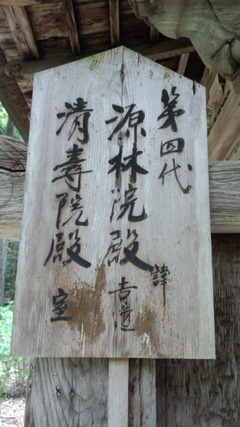 第四代
源林院殿 諱 吉道
清寿院殿 室